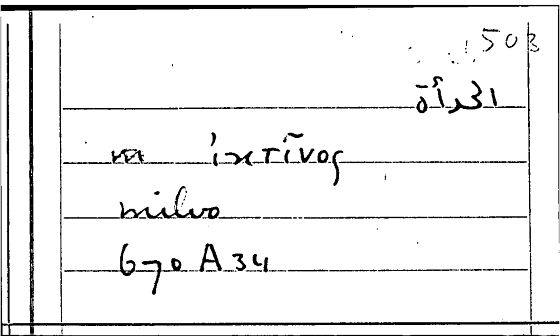 503
الحدأة
m ἰκτῖνος
milvo
670 A 34